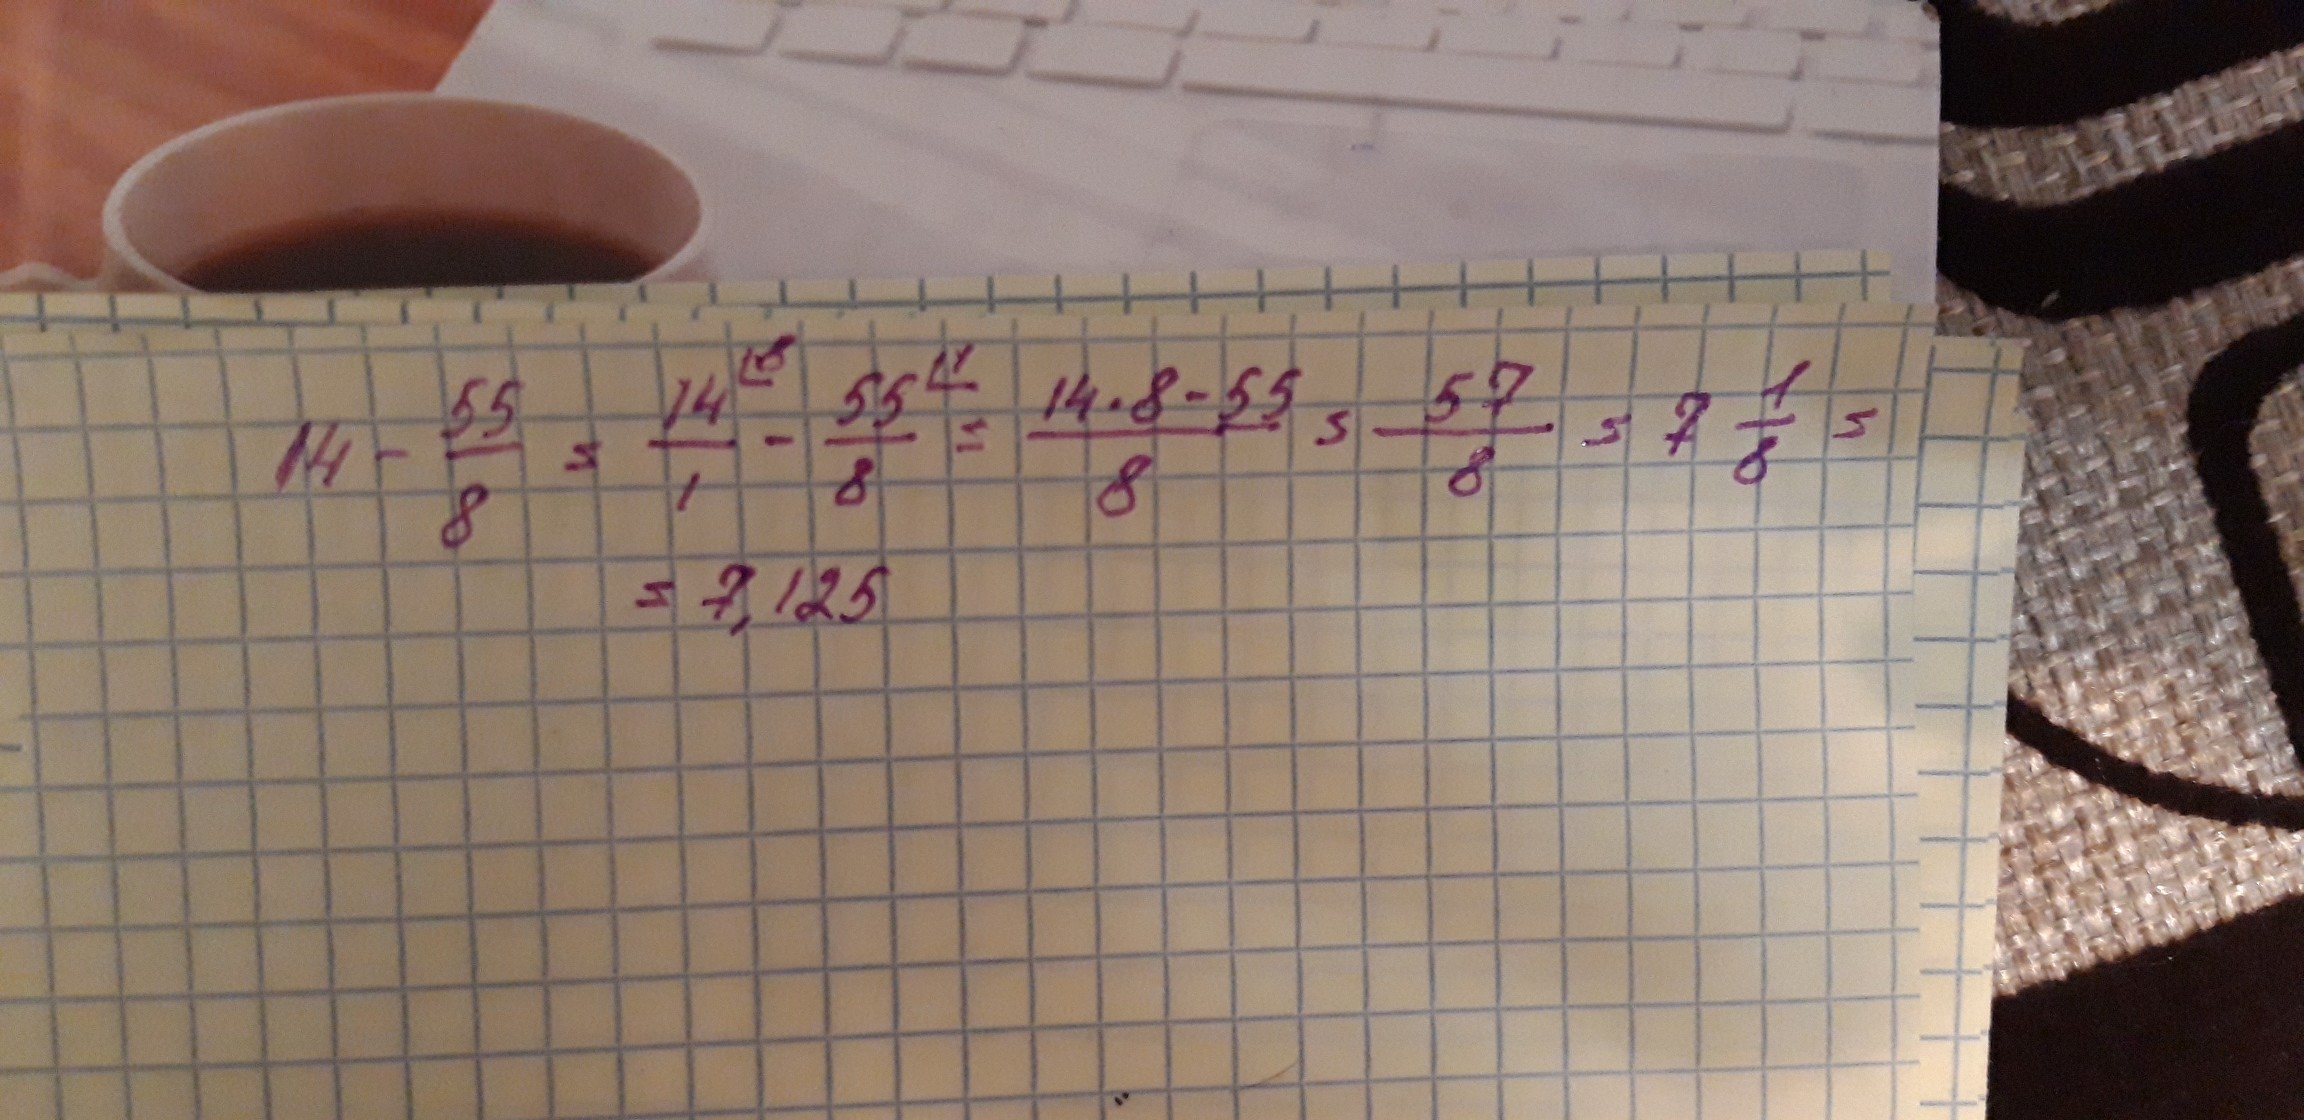 14 - 55/8 = 14⌊8/1 - 55⌊1/8 = 14·8-55/8 = 57/8 = 7 1/8 =
= 7,125